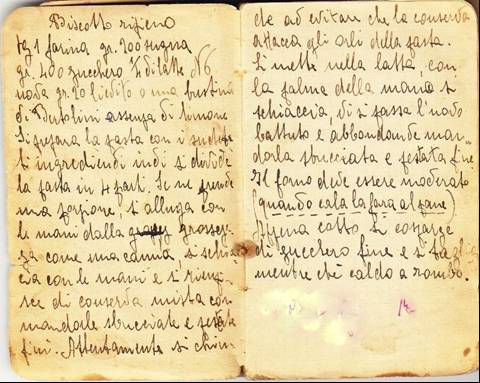 Biscotto ripieno
Kg 1 farina gr. 200 sugna
gr. 400 zucchero ½ di latte N 6
uova gr. 20 lievito o una bustina
di Bertolini essenza di limone
Si prepara la pasta con i sudet-
ti ingredienti indi si divide
la pasta in 4 parti. Se ne prende
una porzione, si allunga con
le mani dalla grossez-
za come una canna, si schiac
cia con le mani e si riempi-
sce di conserva mista con
mandorle sbucciate e pestate
fini. Attentamente si chiu-
de ad evitare che la conserva
attacca gli orli della pasta.
Si mette nella latta, con
la palma della mano si
schiaccia, di si passa l'uovo
battuto e abbondande man-
dorla sbucciata e pestata fine
Il forno deve essere moderato
(quando cala la fara al pane)
Appena cotto si cosparge
di zucchero fine e si taglia
mentre ch'è caldo a rombo.